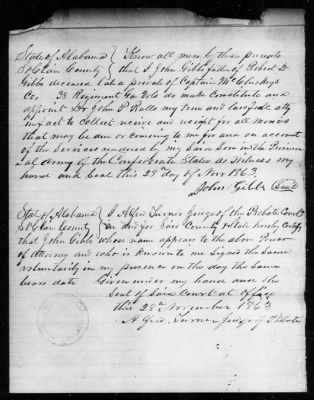 State of Alabama } Know all men by these presents
St Clair County } that I John Gibbs father of Robert D
Gibbs deceased late a private of Captain McCluskeys
Co, 38 Regiment Ga Vols do make Constitute and
appoint Dr John P Ralls my true and lawful atty
in fact to Collect receive and receipt for all monies
that may be due or comeing to me for and on account
of the Services rendered by my Said Son in the Provisi
onal Army of the Confederate States as witness my
hand and Seal this 28th day of Nov 1863
John Gibbs Seal
State of Alabama } I Turner Judge of the Probate Court
St Clair County } in and for Said County & State hereby certify
that John Gibbs whose name appears to the above Power
of Attorney and who is known to me Signed the Same
voluntarily in my presence on the day the Same
bears date Given under my hand and the
Seal of Said Court at Office
this 28th November 1863
Turner Judge of Probate